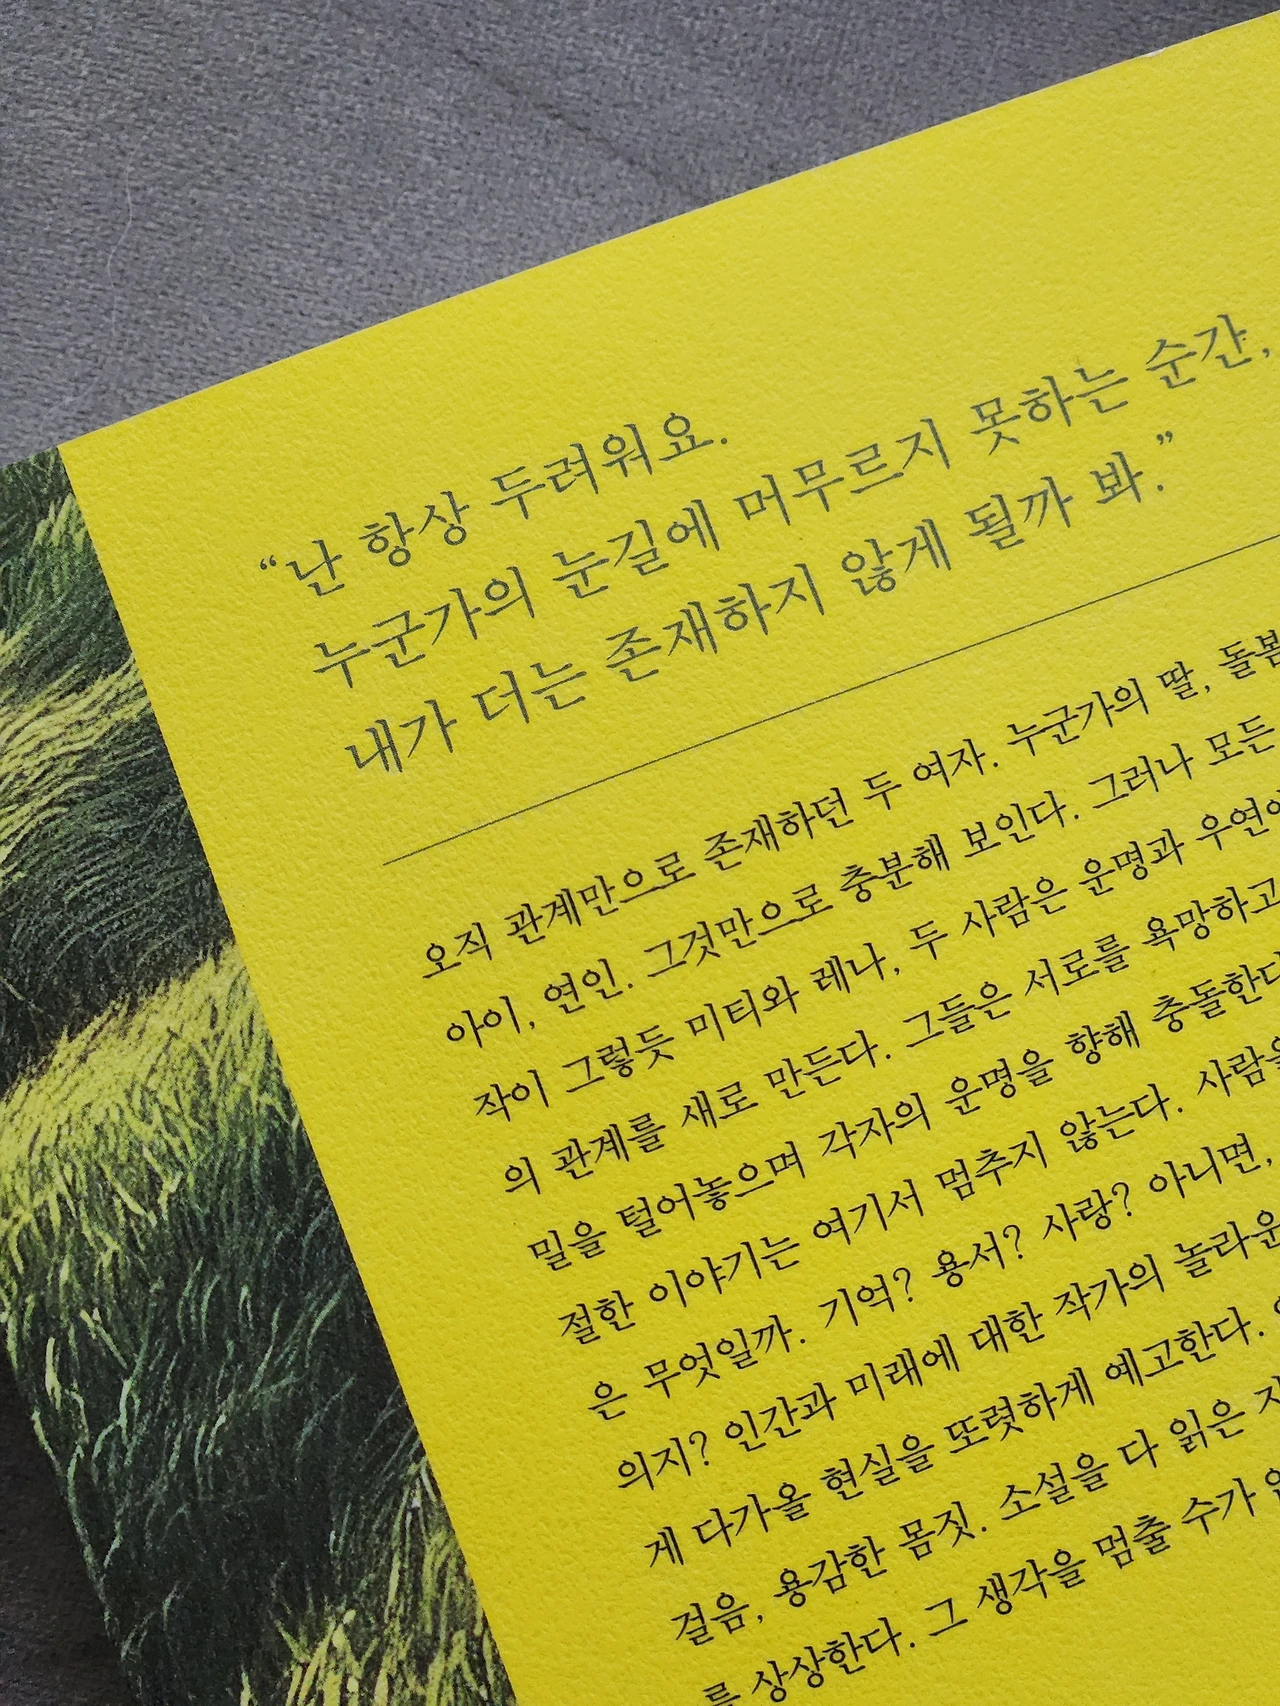 “난 항상 두려워요.
누군가의 눈길에 머무르지 못하는 순간,
내가 더는 존재하지 않게 될까 봐.”
오직 관계만으로 존재하던 두 여자. 누군가의 딸, 돌봄
아이, 연인. 그것만으로 충분해 보인다. 그러나 모든
작이 그렇듯 미티와 레나, 두 사람은 운명과 우연이
의 관계를 새로 만든다. 그들은 서로를 욕망하고
밀을 털어놓으며 각자의 운명을 향해 충돌한다
절한 이야기는 여기서 멈추지 않는다. 사람을
은 무엇일까. 기억? 용서? 사랑? 아니면,
의지? 인간과 미래에 대한 작가의 놀라운
게 다가올 현실을 또렷하게 예고한다.
걸음, 용감한 몸짓. 소설을 다 읽은
를 상상한다. 그 생각을 멈출 수가